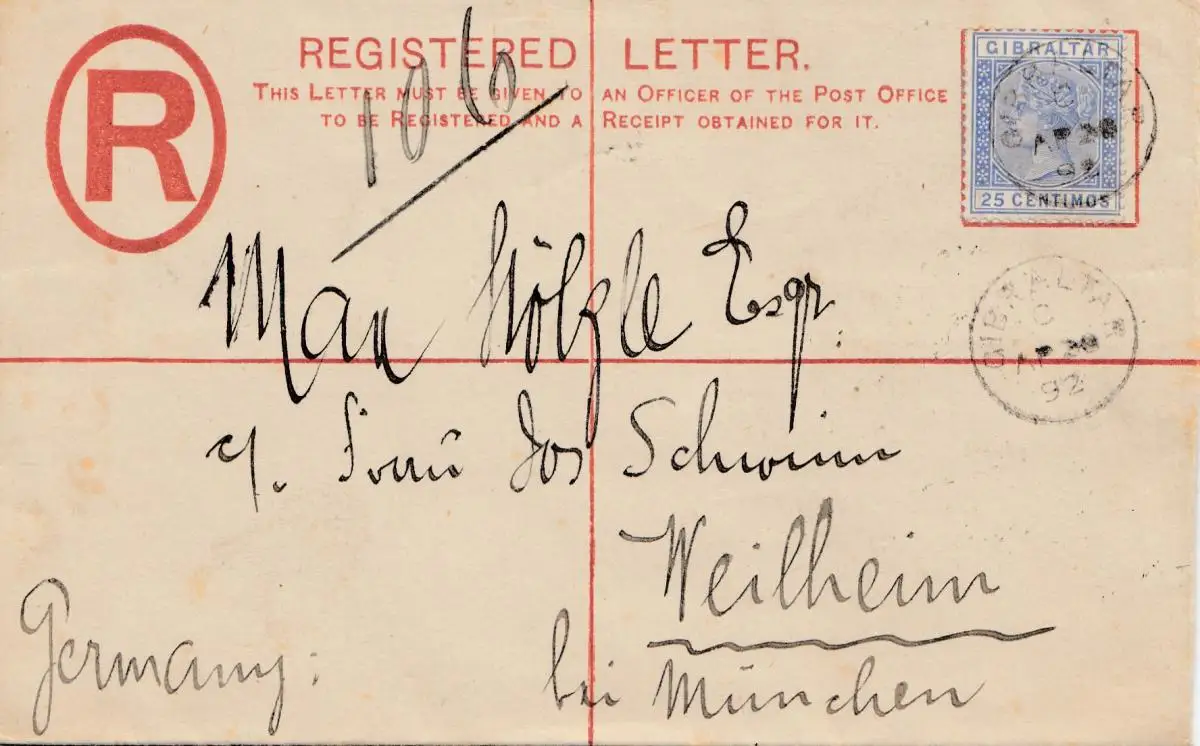 R
REGISTERED LETTER.
THIS LETTER MUST BE GIVEN TO AN OFFICER OF THE POST OFFICE
TO BE REGISTERED AND A RECEIPT OBTAINED FOR IT.
106
GIBRALTAR
25 CENTIMOS
GIBRALTAR
C
AP 28
92
Max Hölzle Esqr.
GIBRALTAR
C
AP 28
92
c/. Jos Schwinn
Weilheim
Germany:
bei München